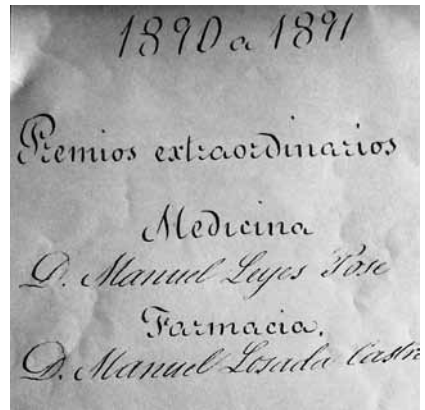 1890 a 1891
Premios extraordinarios
Medicina
D. Manuel Leyes Pose
Farmacia.
D. Manuel Losada Castro